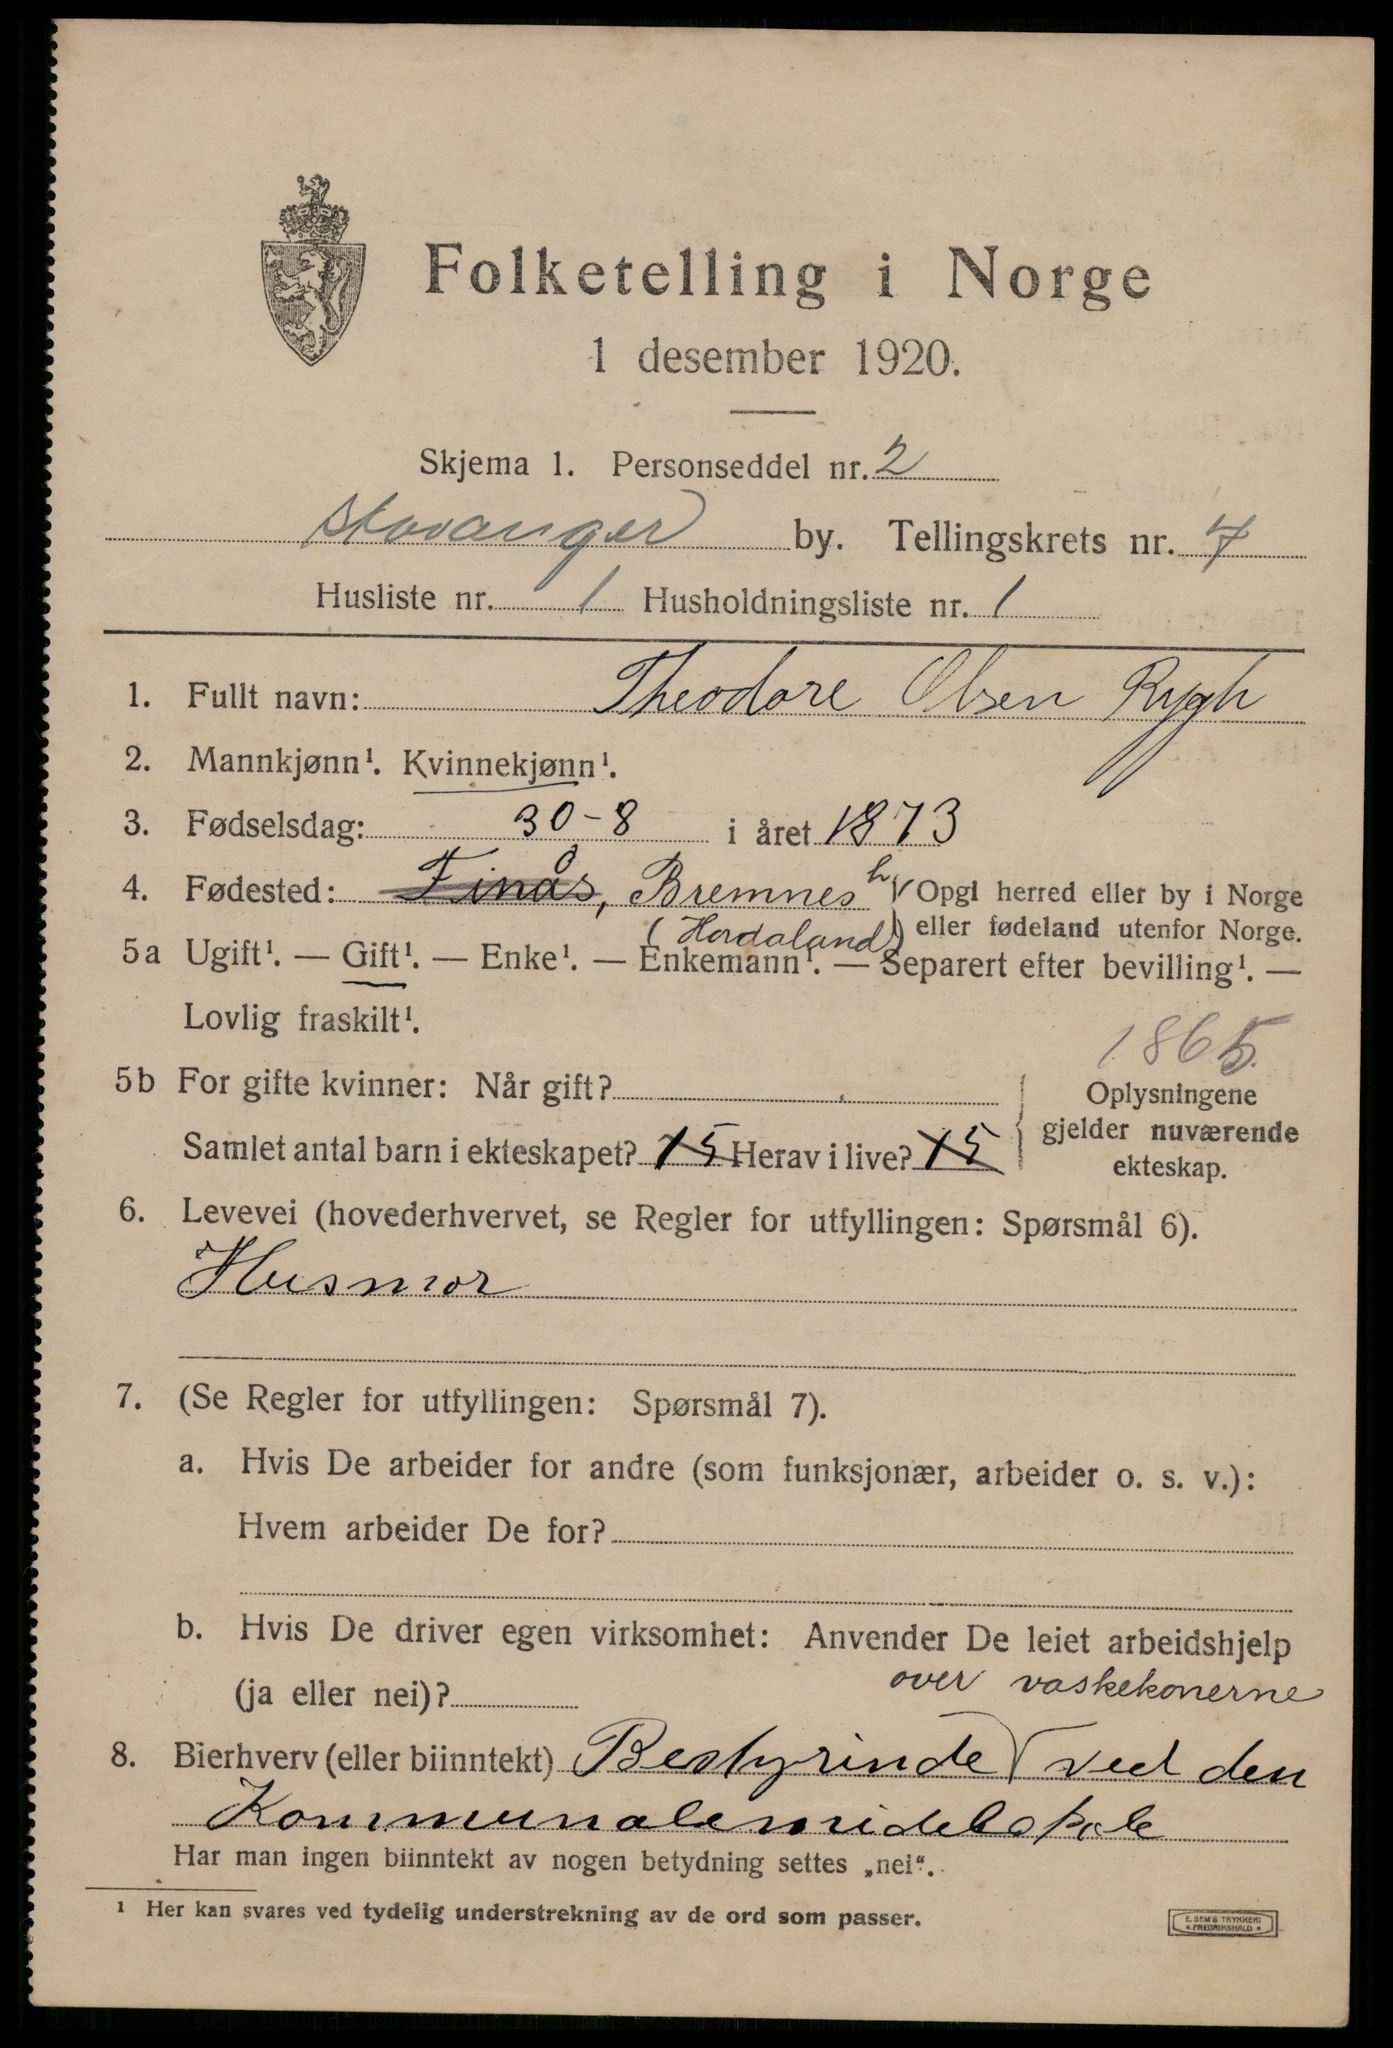 Folketelling i Norge
1 desember 1920.
Skjema 1. Personseddel nr. 2
Stavanger by. Tellingskrets nr. 7
Husliste nr. 1 Husholdningsliste nr. 1
1. Fullt navn: Theodore Olsen Rygh
2. Mannkjønn¹. Kvinnekjønn¹.
3. Fødselsdag: 30-8 i året 1873
4. Fødested: Finås, Bremnes h (Opgi herred eller by i Norge
(Hordaland) eller fødeland utenfor Norge.
5a Ugift¹. — Gift¹. — Enke¹. — Enkemann¹. — Separert efter bevilling¹. —
Lovlig fraskilt¹.
1865
5b For gifte kvinner: Når gift?
Samlet antal barn i ekteskapet? 15 Herav i live? 15
Oplysningene
gjelder nuværende
ekteskap.
6. Levevei (hovederhvervet, se Regler for utfyllingen: Spørsmål 6).
Husmor
7. (Se Regler for utfyllingen: Spørsmål 7).
a. Hvis De arbeider for andre (som funksjonær, arbeider o. s. v.):
Hvem arbeider De for?
b. Hvis De driver egen virksomhet: Anvender De leiet arbeidshjelp
(ja eller nei)?
over vaskekonerne
8. Bierhverv (eller biinntekt) Bestyrinde √ ved den
Kommunalemidelskole
Har man ingen biinntekt av nogen betydning settes „nei“.
¹ Her kan svares ved tydelig understrekning av de ord som passer.
E. SEM'S TRYKKERI
* FREDRIKSHALD *